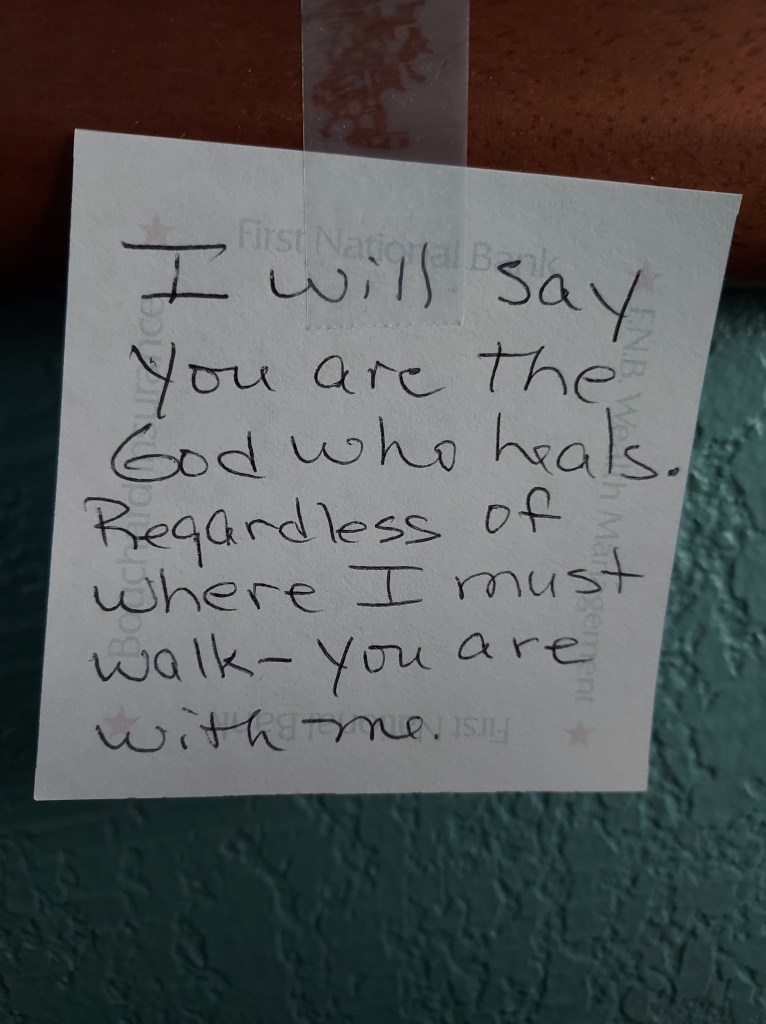 First National Bank
I will say
you are the
God who heals.
Regardless of
where I must
walk - you are
with me.
FNB Wealth Management
First National Bank
Insurance